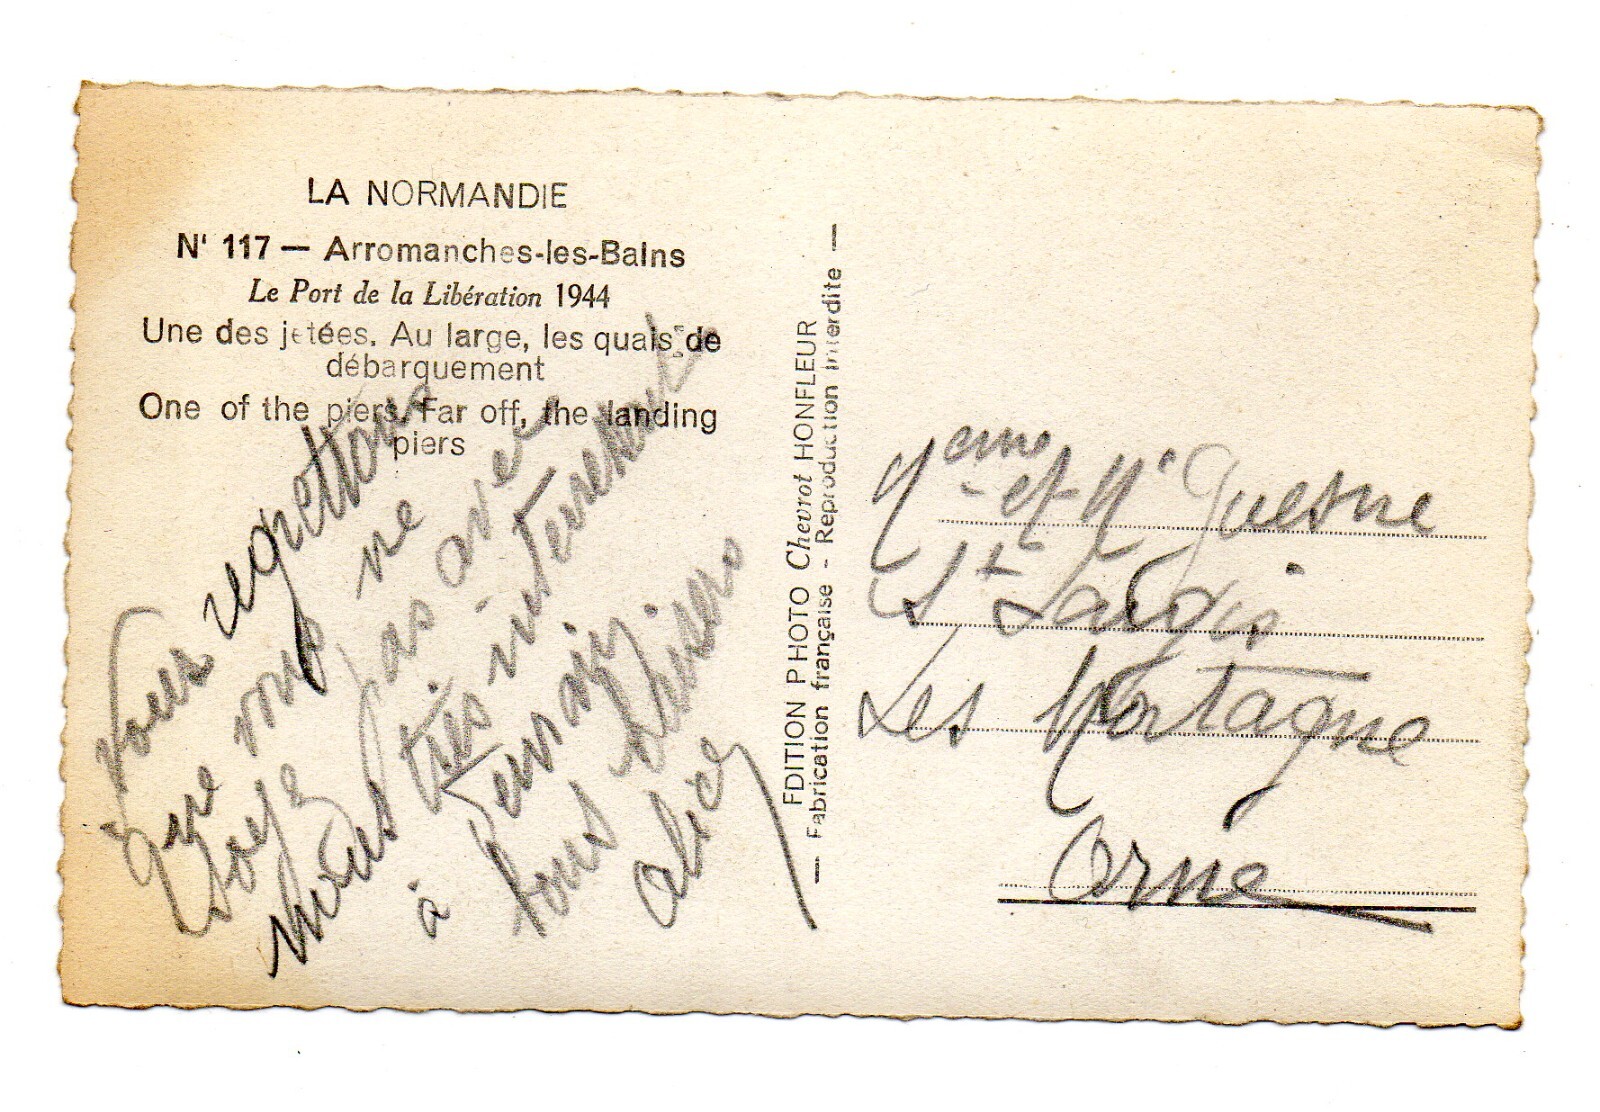 LA NORMANDIE
N' 117 — Arromanches-les-Bains
Le Port de la Libération 1944
Une des jetées. Au large, les quais de
débarquement
One of the piers. Far off, the landing
piers
Nous regrettons
que vous ne
soyez pas avec
nous très interressant
à
tous
Alice
EDITION PHOTO Chevrot HONFLEUR
— Fabrication française - Reproduction interdite —
Meme et Mr Guesne
St Langis
Les Mortagne
Orne